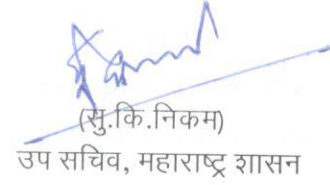 (सु.कि.निकम)
उप सचिव, महाराष्ट्र शासन